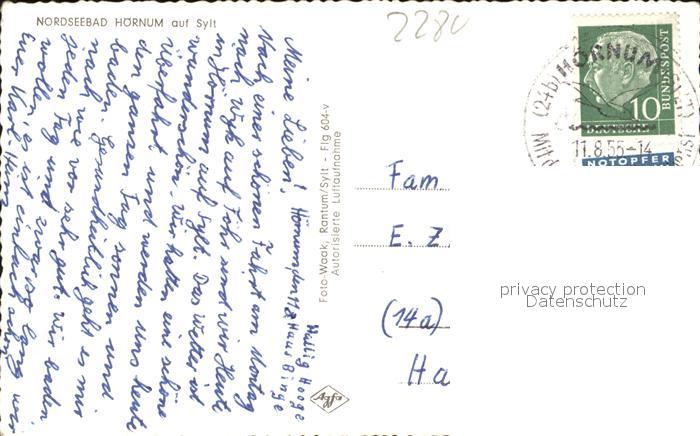 NORDSEEBAD HÖRNUM auf Sylt
2280
Hörnum, den 11.8.
Hallig Hooge
Haus Binge
Meine Lieben!
Nach einer schönen Fahrt am Montag
nach Wyk auf Föhr und wir Heute
in Hörnum auf Sylt. Das Wetter ist
wunderschön. Wir hatten eine schöne
Überfahrt und werden uns heute
den ganzen Tag sonnen und
baden. Gesundheitlich geht es mir
nach wie vor sehr gut. Wir baden
jeden Tag und zwar so lang wir
wollen, es ist einfach schön
Euer Karl Heinz
Foto-Waak, Rantum/Sylt - Flg 604-v
Autorisierte Luftaufnahme
Agfa
Fam.
E. Z.
(14a)
Ha
(24b) HÖRNUM (SYLT)
11.8.55-14
10
BUNDESPOST
DEUTSCHE
NOTOPFER
privacy protection
Datenschutz